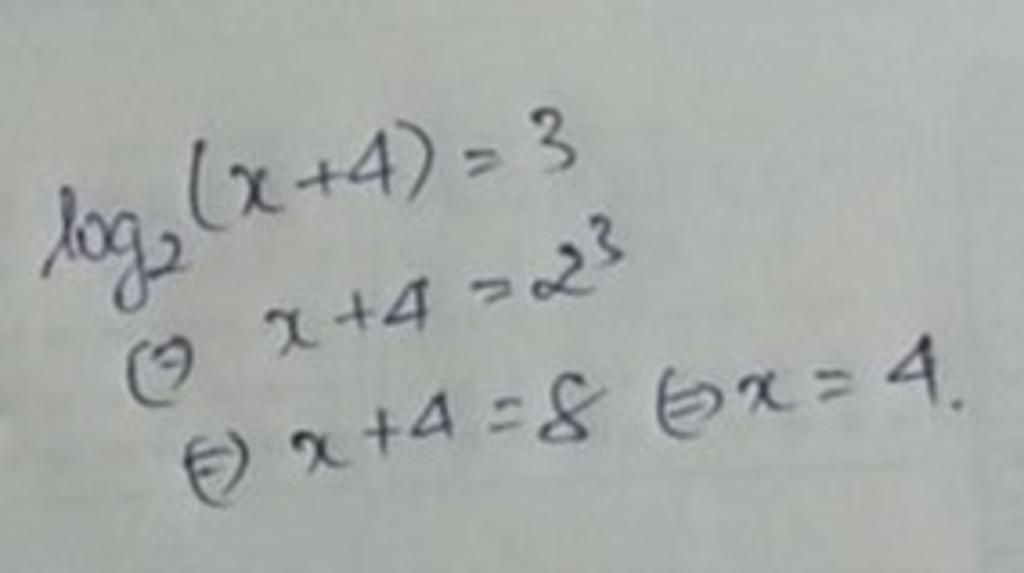 log₂(x+4) = 3
⇔ x+4 = 2³
⇔ x+4 = 8 ⇔ x = 4.